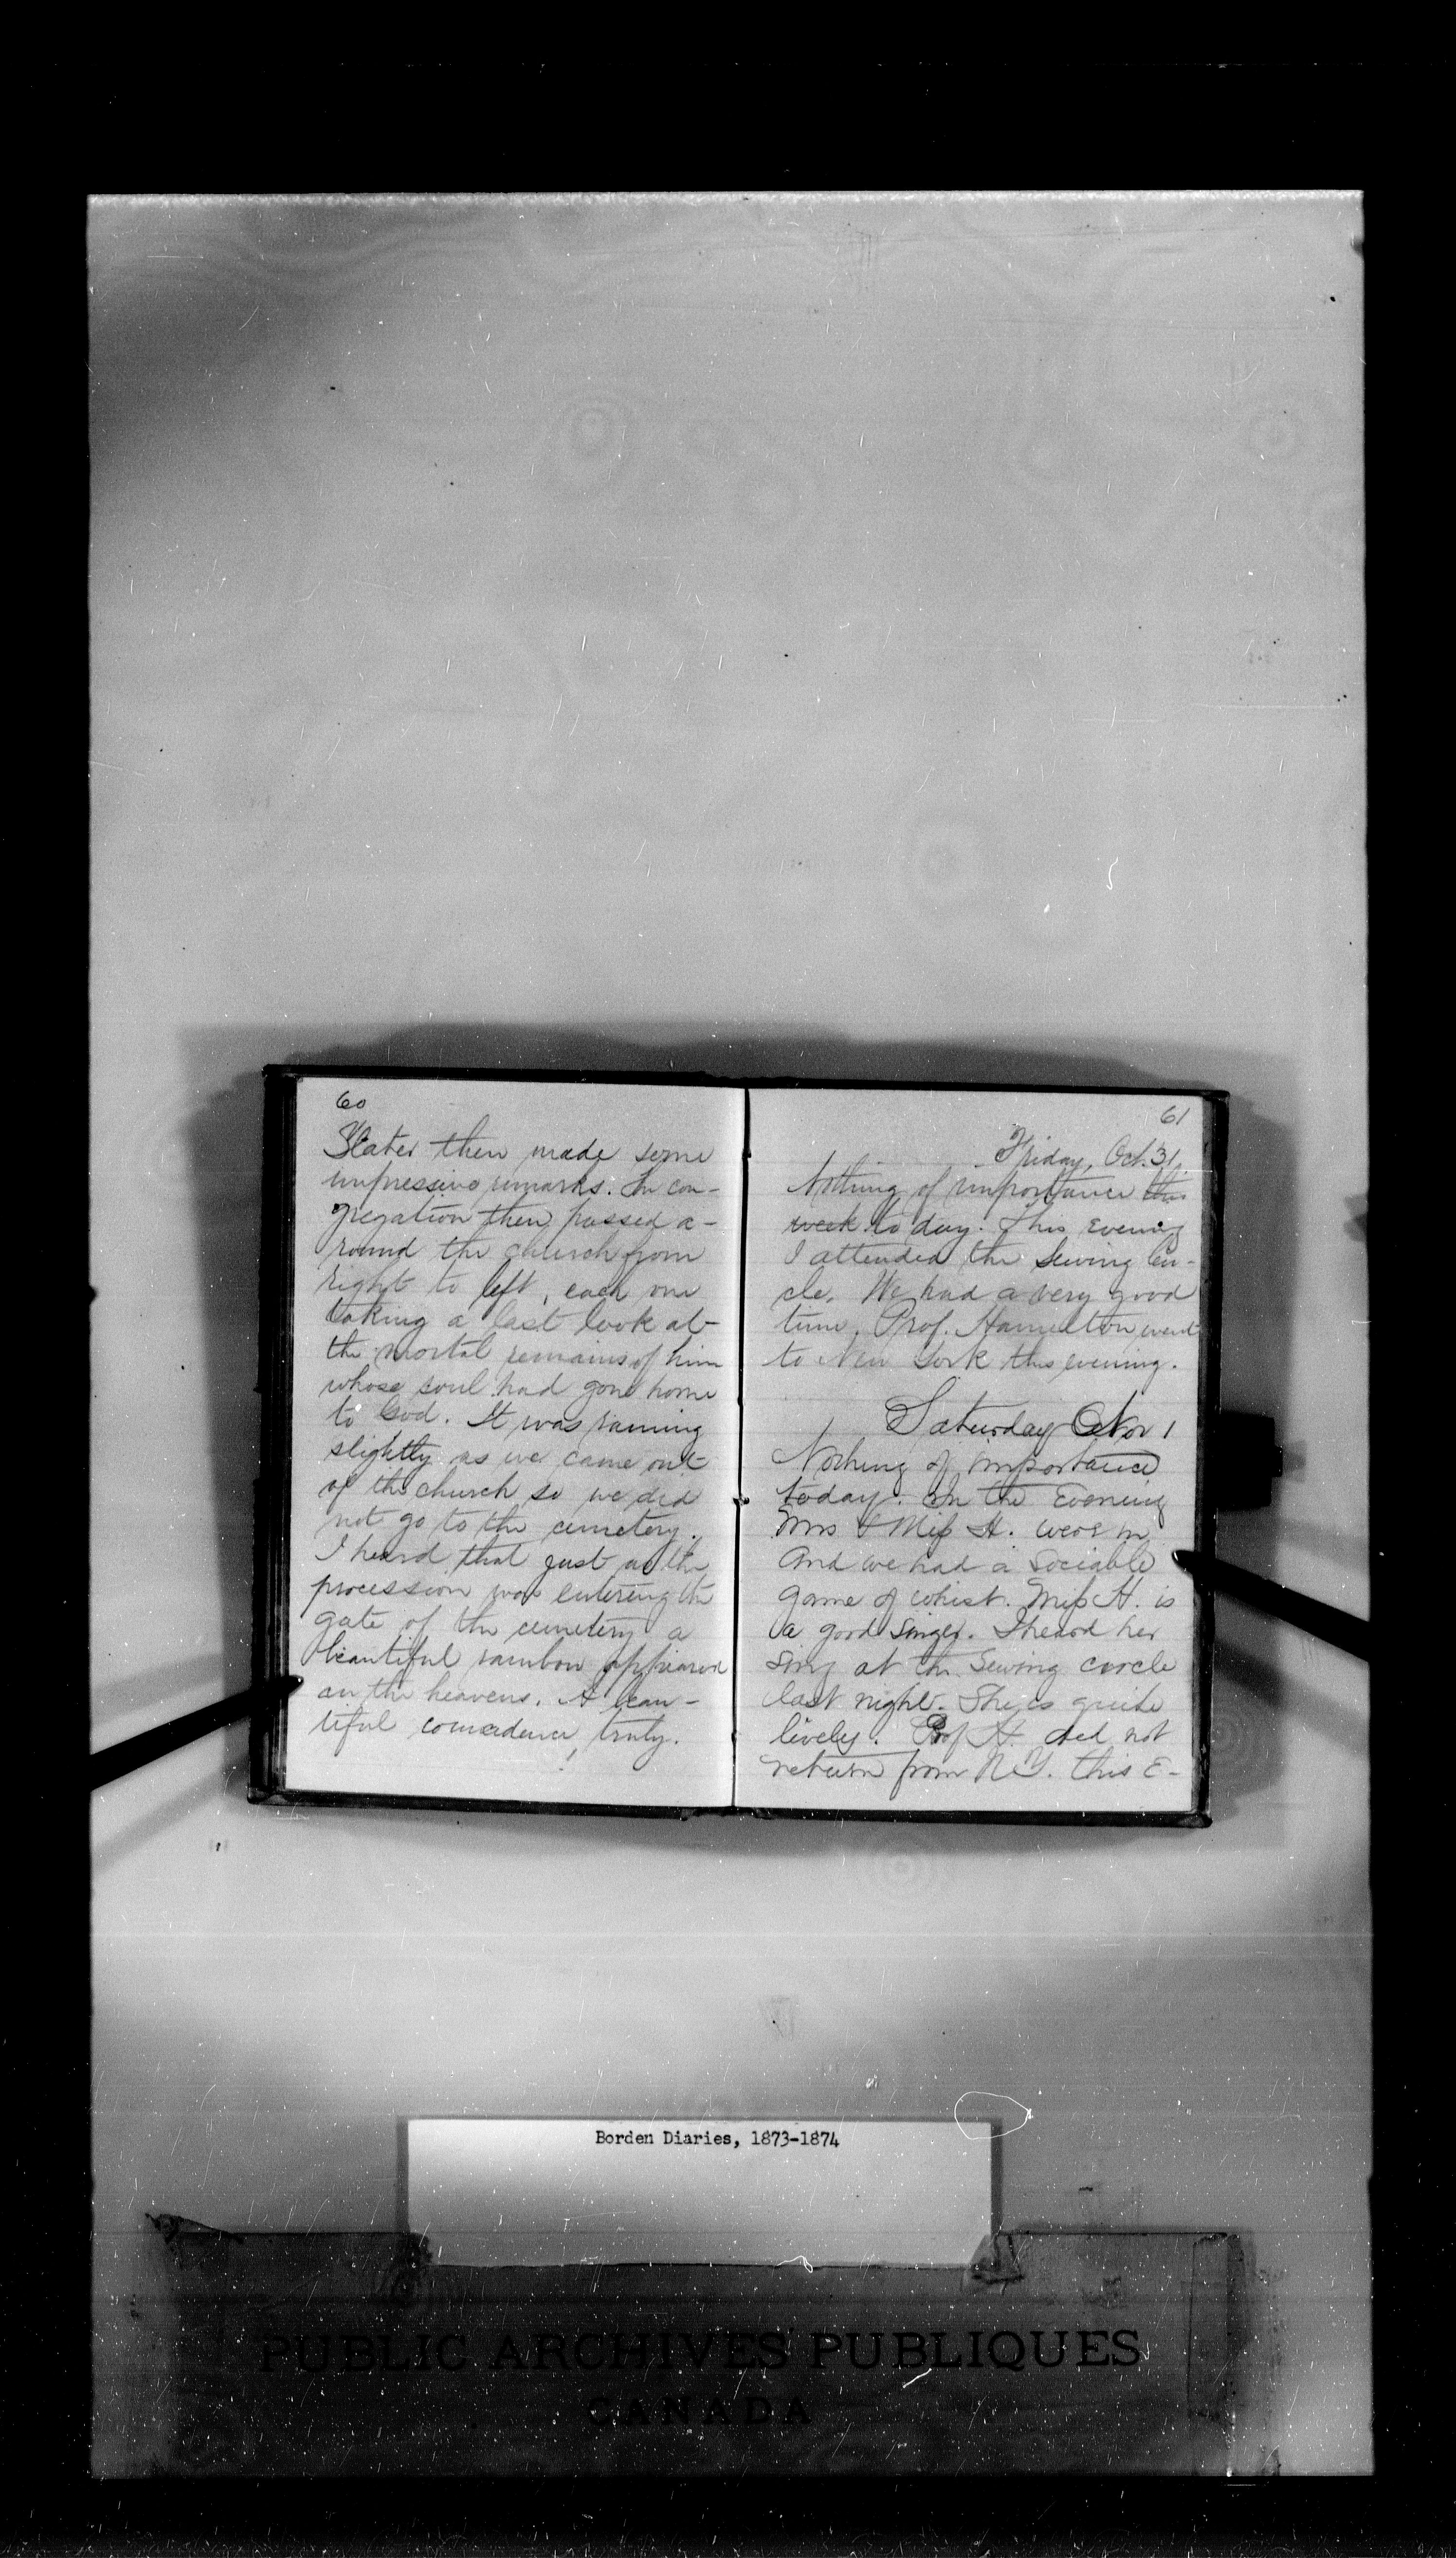 60
Slater then made some
impressive remarks. The con-
gregation then passed a-
round the church from
right to left, each one
taking a last look at
the mortal remains of him
whose soul had gone home
to God. It was raining
slightly as we came out
of the church so we did
not go to the cemetery.
I heard that just as the
procession was entering the
gate of the cemetery a
beautiful rainbow appeared
on the heavens. A beau-
tiful coincidence, truly.
61
Friday, Oct. 31.
Nothing of importance this
week to day. This evening
I attended the Sewing Cir-
cle. We had a very good
time. Prof. Hamilton went
to New York this evening.
Saturday Nov 1
Nothing of importance
today. In the Evening
Mrs & Miss H. were in
And we had a Sociable
game of whist. Miss H. is
a good singer. I heard her
sing at the Sewing circle
last night. She is quite
lively. Prof H. did not
return from N.Y. this E-
Borden Diaries, 1873-1874
PUBLIC ARCHIVES PUBLIQUES
CANADA